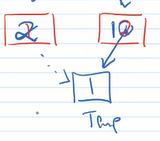 2 10
1
Tmp